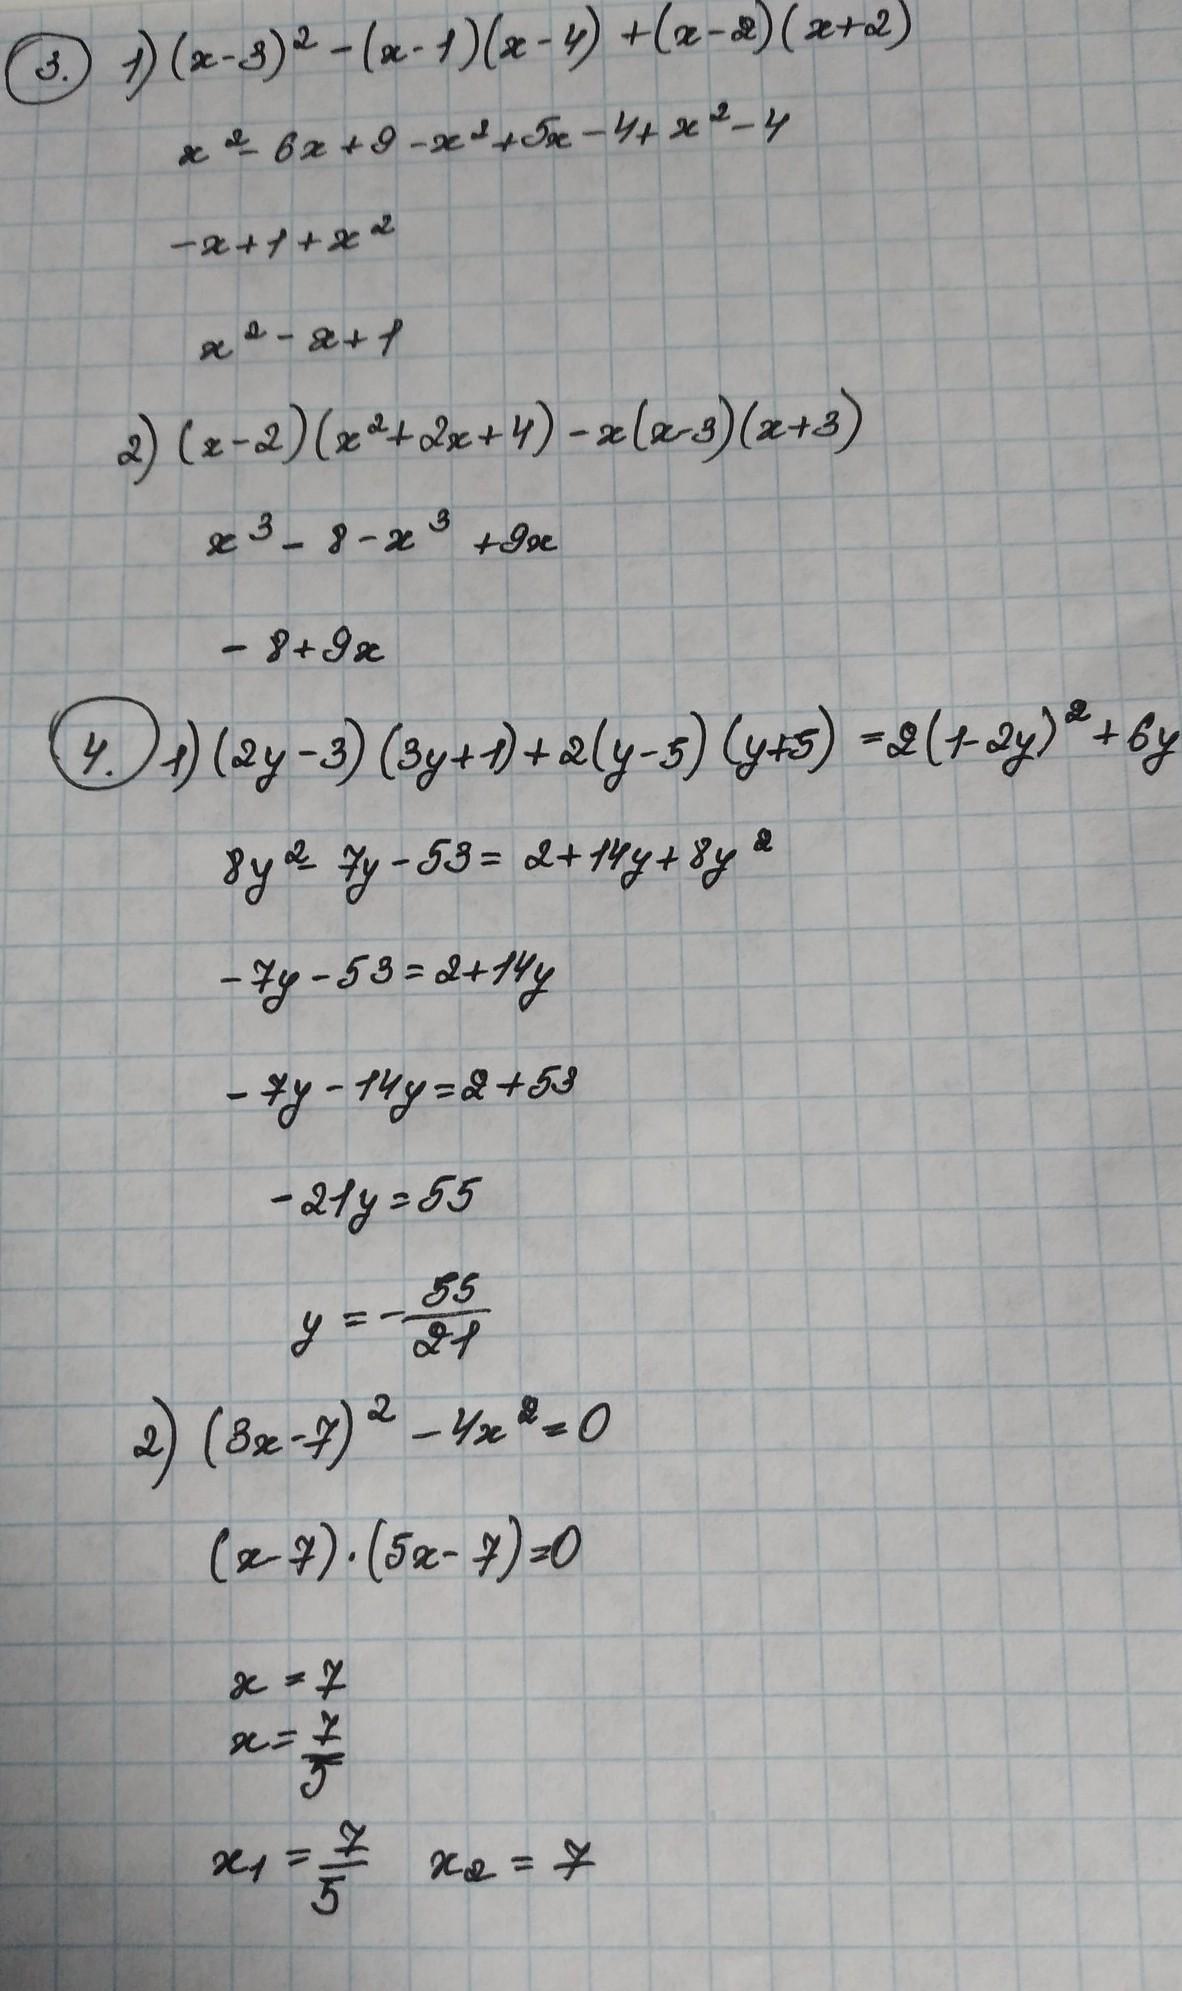 3. 1) (x-3)² - (x-1)(x-4) + (x-2)(x+2)
x² - 6x + 9 - x² + 5x - 4 + x² - 4
-x + 1 + x²
x² - x + 1
2) (x-2)(x²+2x+4) - x(x-3)(x+3)
x³ - 8 - x³ + 9x
- 8 + 9x
4. 1) (2y-3)(3y+1) + 2(y-5)(y+5) = 2(1-2y)² + 6y
8y² - 7y - 53 = 2 + 14y + 8y²
-7y - 53 = 2 + 14y
-7y - 14y = 2 + 53
-21y = 55
y = -55/21
2) (3x-7)² - 4x² = 0
(x-7)·(5x-7)=0
x = 7
x = 7/5
x₁ = 7/5 x₂ = 7